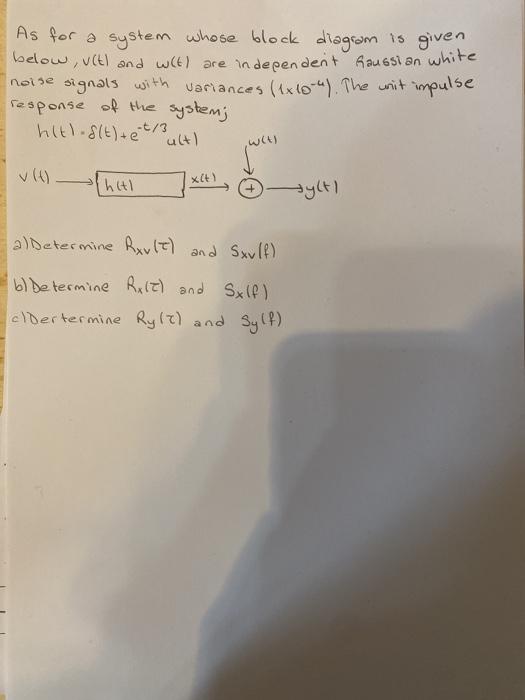 As for a system whose block diagram is given
below, v(t) and w(t) are independent Gaussian white
noise signals with variances (1x10⁻⁴). The unit impulse
response of the system;
h(t)=δ(t)+e^-t/3 u(t)
w(t)
v(t) h(t) x(t) + y(t)
a) Determine Rxv(τ) and Sxv(f)
b) Determine Rx(τ) and Sx(f)
c) Dertermine Ry(τ) and Sy(f)